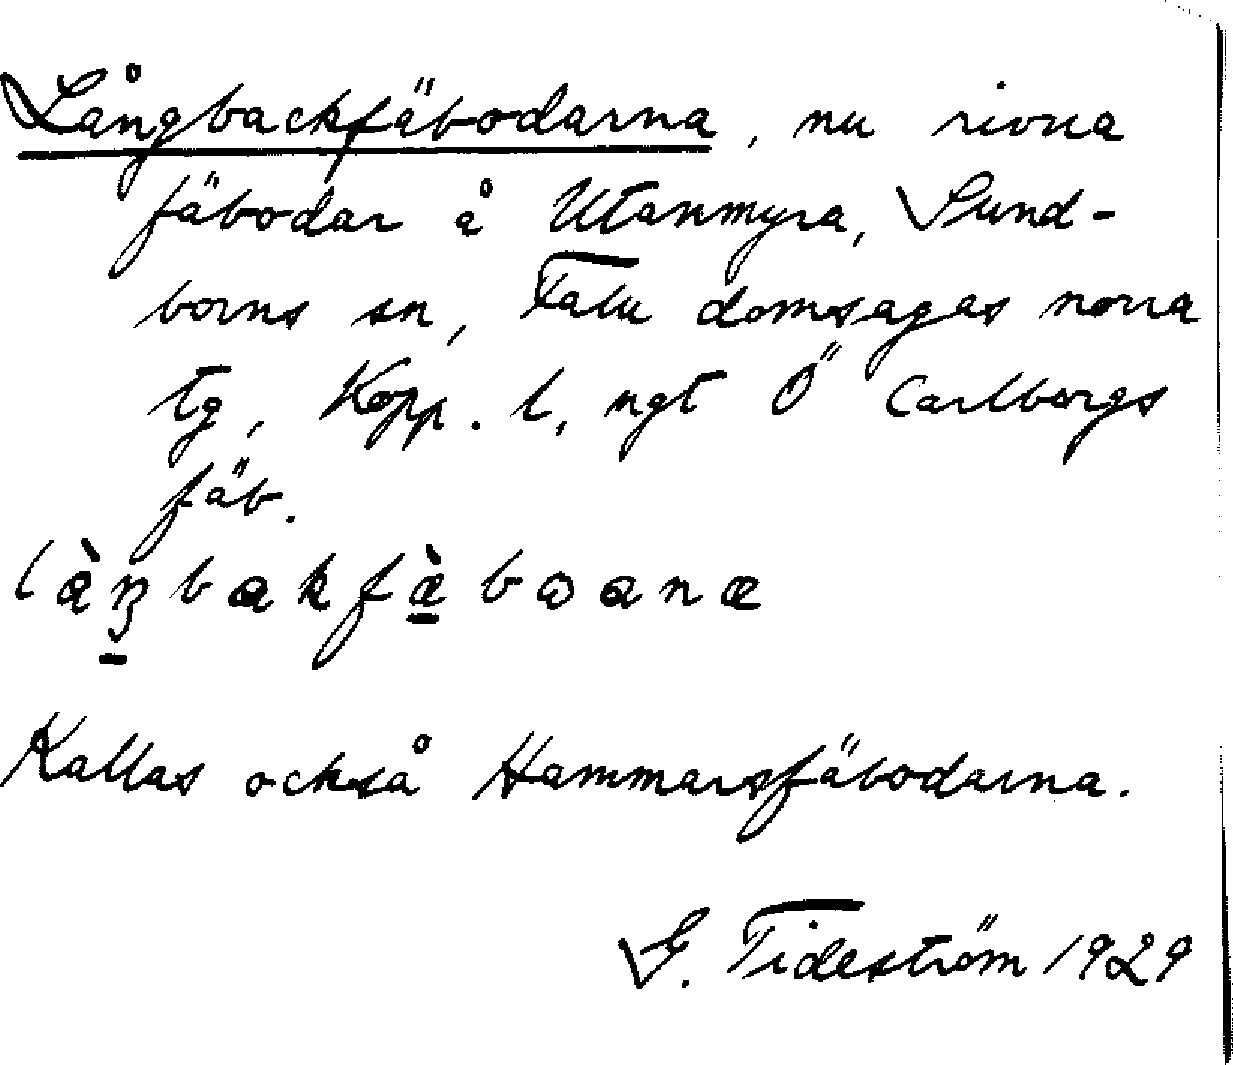 Långbackfäbodarna, nu rivna
fäbodar å Utanmyra, Sund-
borns sn, Falu domsagas norra
tg, Kopp. l, ngt Ö Carlborgs
fäb.
Kallas också Hammarsfäbodarna.
G. Tideström 1929